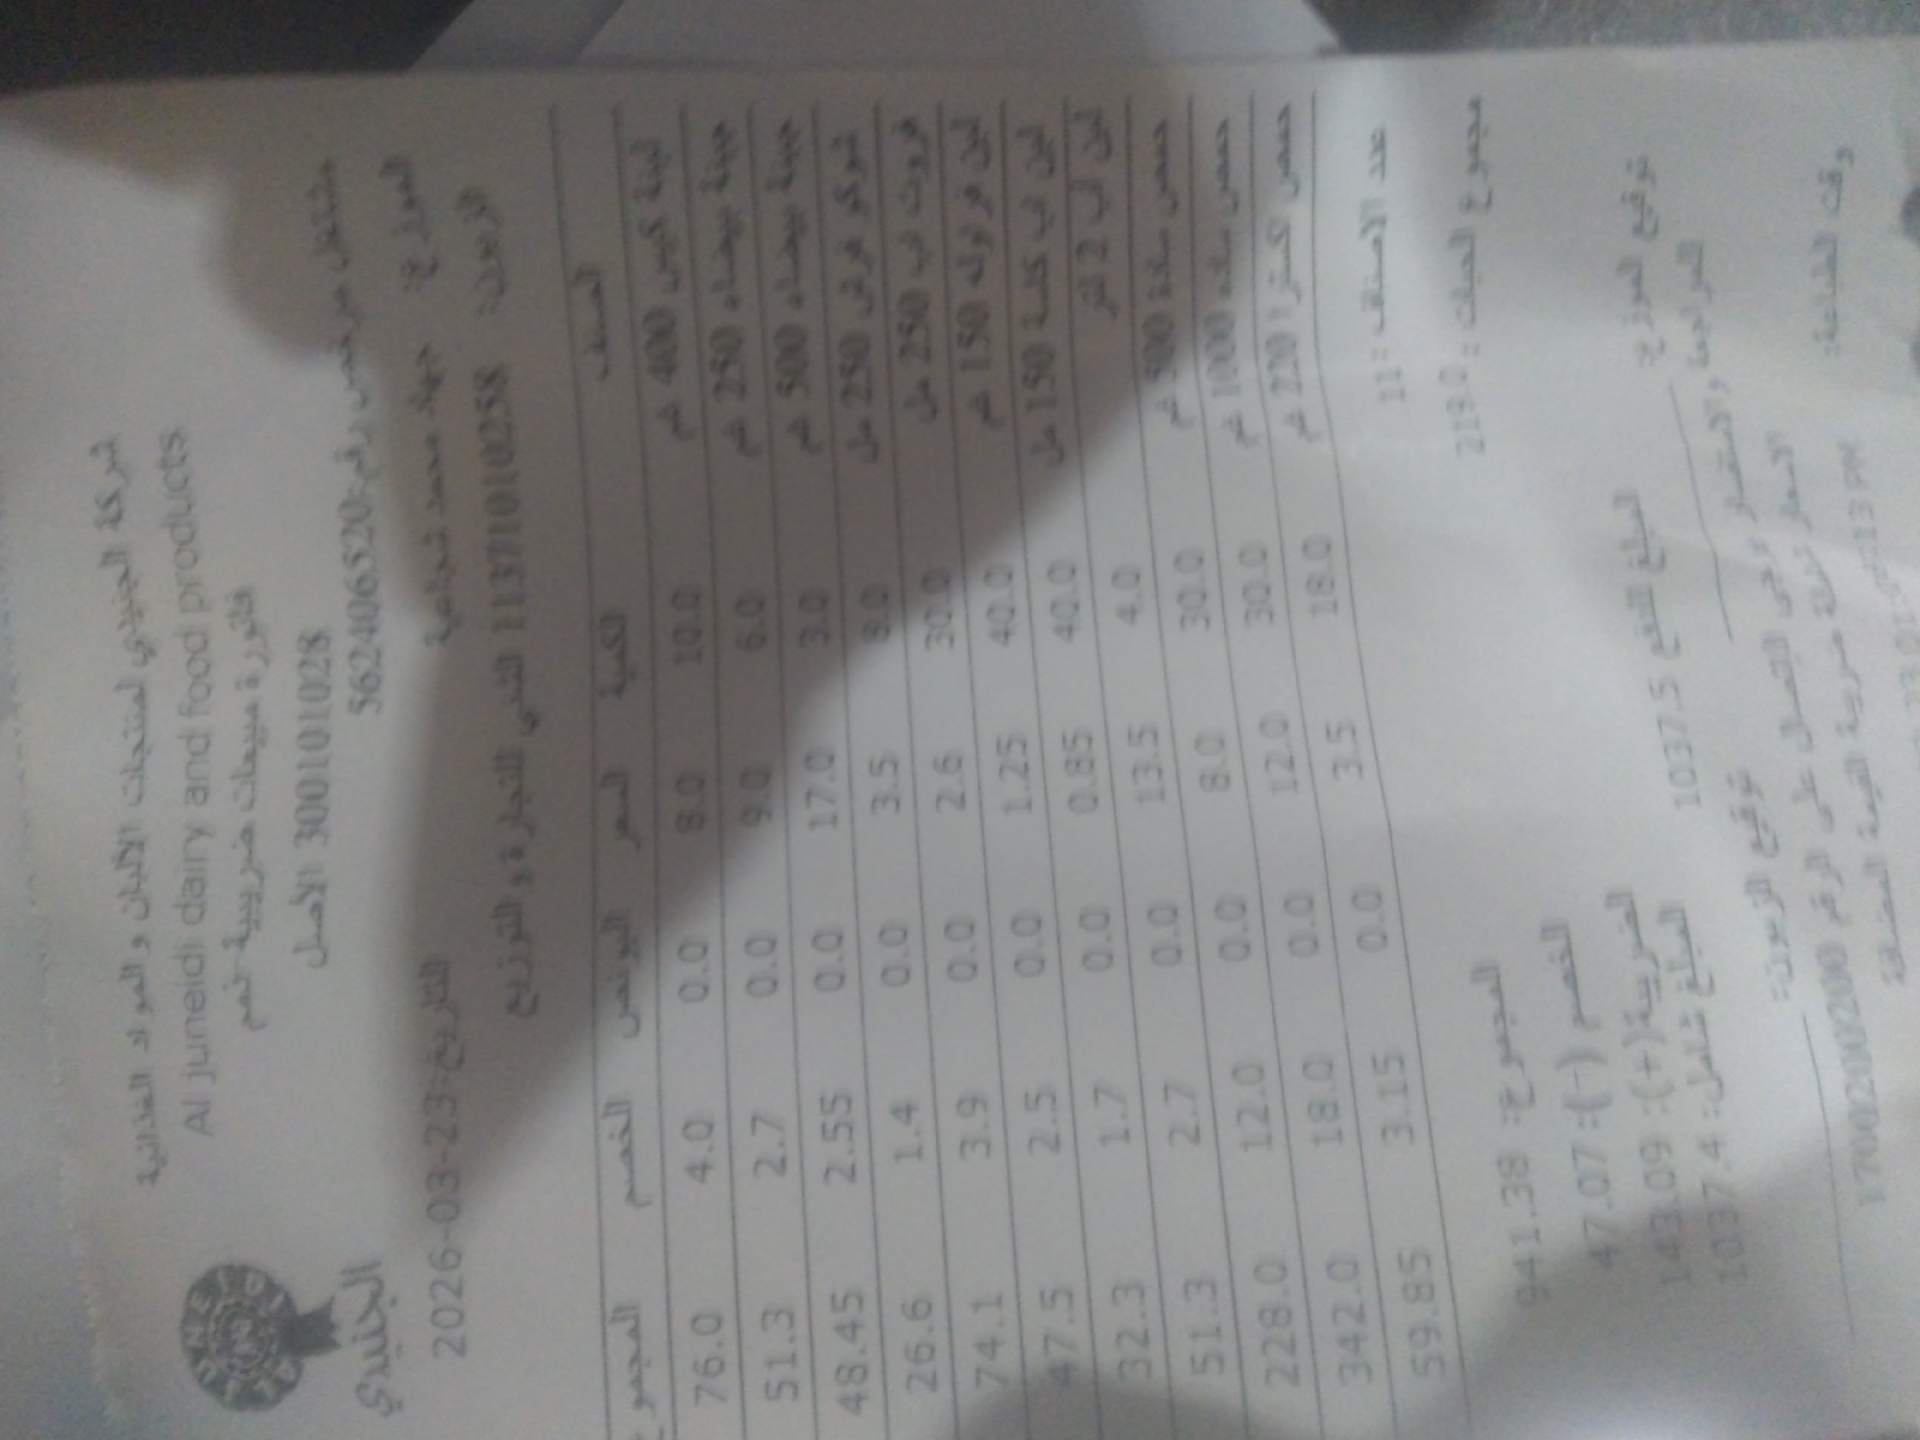 شركة الجنيدي لمنتجات الألبان و المواد الغذائية
Al juneidi dairy and food products
فاتورة مبيعات ضريبية
300101028 الأصل
مشتغل مرخص رقم:562406520
الجنيدي
الموزع: جهاد محمد
التاريخ:2026-03-23
الزبون: 11137101010258 للتجارة و التوزيع
الصنف الكمية السعر البونص الخصم المجموع
لبنة كيس 400 غم 10.0 8.0 0.0 4.0 76.0
جبنة بيضاء 250 غم 6.0 9.0 0.0 2.7 51.3
جبنة بيضاء 500 غم 3.0 17.0 0.0 2.55 48.45
شوكو فرش 250 مل 8.0 3.5 0.0 1.4 26.6
فروت لب 250 مل 30.0 2.6 0.0 3.9 74.1
لبن فراوله 150 غم 40.0 1.25 0.0 2.5 47.5
لبن اب 150 مل 40.0 0.85 0.0 1.7 32.3
لبن اب 2 لتر 4.0 13.5 0.0 2.7 51.3
حمص سادة 500 غم 30.0 8.0 0.0 12.0 228.0
حمص سادة 1000 غم 30.0 12.0 0.0 18.0 342.0
حمص اكسترا 220 غم 18.0 3.5 0.0 3.15 59.85
عدد الاصناف: 11
مجموع الحبات: 219.0
المجموع: 941.38
الخصم (-): 47.07
الضريبة(+): 143.09
المبلغ شامل: 1037.4
المبلغ للدفع 1037.5
توقيع الموزع:
توقيع الزبون:
للمراجعة والاستفسار يرجى الاتصال على الرقم 1700200200
الاسعار شاملة ضريبة القيمة المضافة
وقت الطباعة: